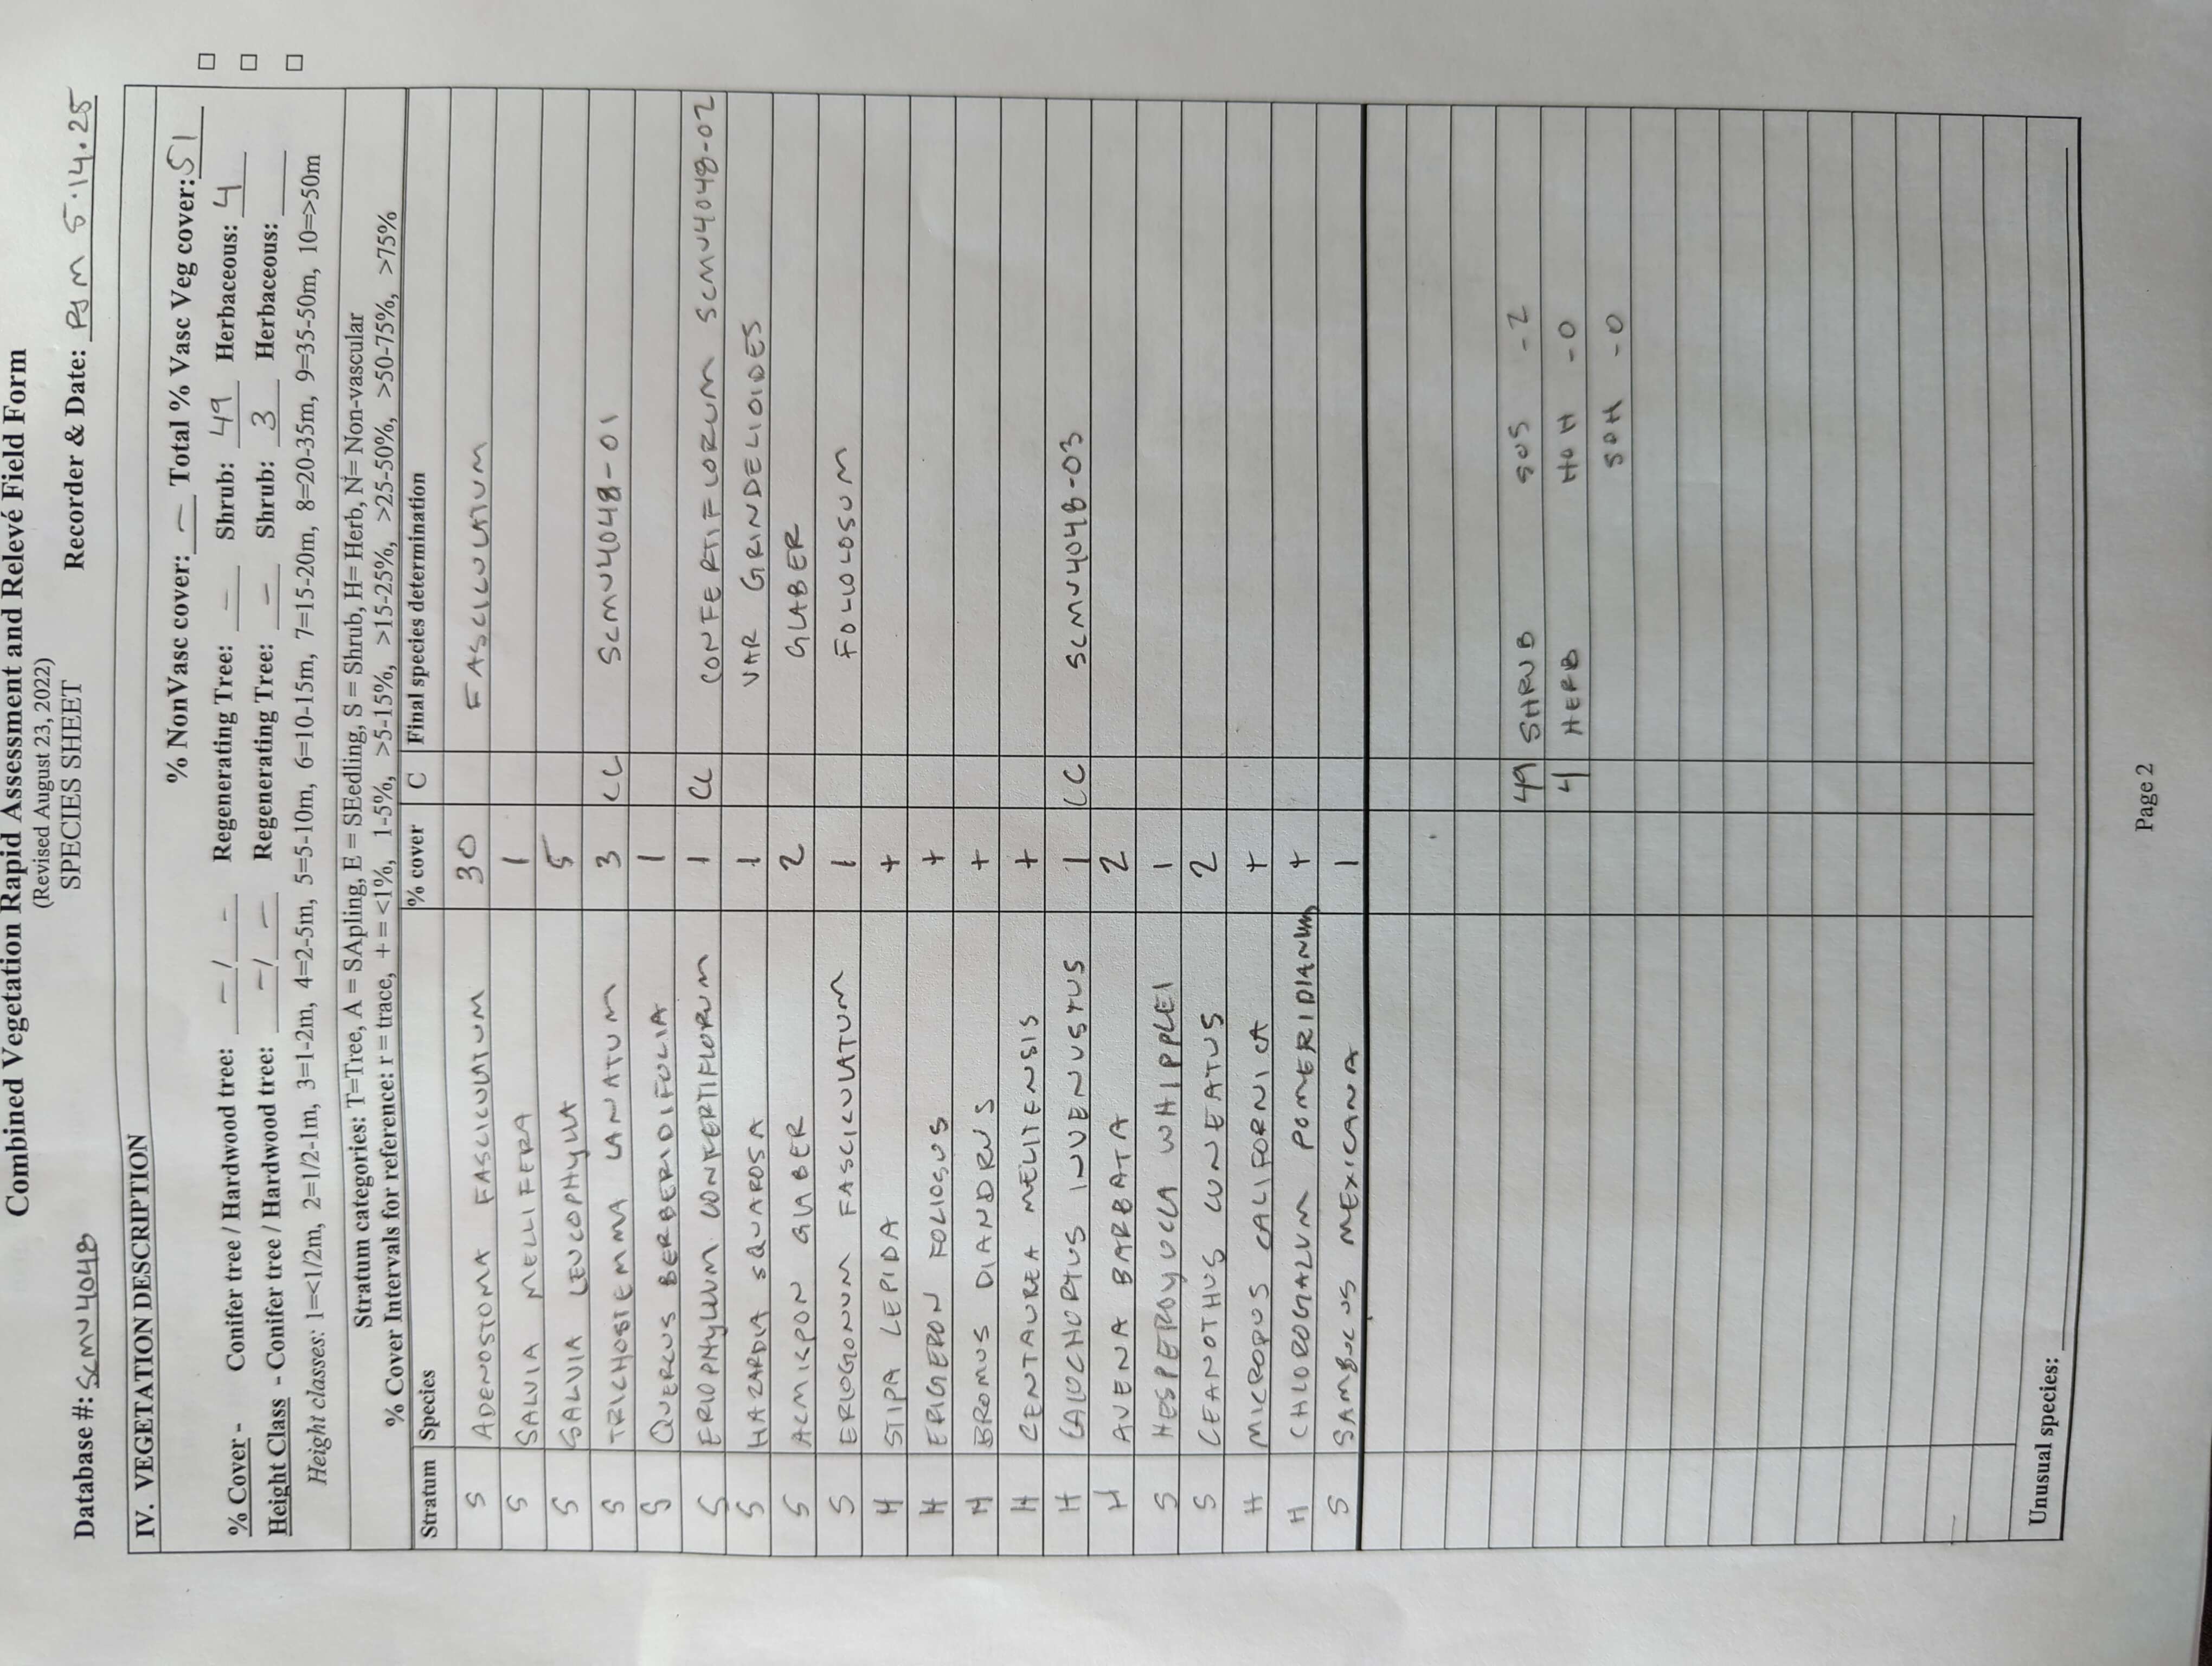 Combined Vegetation Rapid Assessment and Relevé Field Form
(Revised August 23, 2022)
SPECIES SHEET
Database #: SCMV4048 Recorder & Date: PJM 5.14.25
IV. VEGETATION DESCRIPTION
% NonVasc cover: — Total % Vasc Veg cover: 51
% Cover - Conifer tree / Hardwood tree: — / — Regenerating Tree: — Shrub: 49 Herbaceous: 4 □
Height Class - Conifer tree / Hardwood tree: — / — Regenerating Tree: — Shrub: 3 Herbaceous: □
Height classes: 1=<1/2m, 2=1/2-1m, 3=1-2m, 4=2-5m, 5=5-10m, 6=10-15m, 7=15-20m, 8=20-35m, 9=35-50m, 10=>50m □
Stratum categories: T=Tree, A = SApling, E = SEedling, S = Shrub, H= Herb, N= Non-vascular
% Cover Intervals for reference: r = trace, + = <1%, 1-5%, >5-15%, >15-25%, >25-50%, >50-75%, >75%
Stratum Species % cover C Final species determination
S ADENOSTOMA FASCICULATUM 30 FASCICULATUM
S SALVIA MELLIFERA 1
S SALVIA LEUCOPHYLLA 5
S TRICHOSTEMMA LANATUM 3 CC SCMV4048-01
S QUERCUS BERBERIDIFOLIA 1
S ERIOPHYLLUM CONFERTIFLORUM 1 CC CONFERTIFLORUM SCMV4048-02
S HAZARDIA SQUAROSA 1 VAR GRINDELIOIDES
S ACMISPON GLABER 2 GLABER
S ERIOGONUM FASCICULATUM 1 FOLOLOSUM
H STIPA LEPIDA +
H ERIGERON FOLIOSUS +
H BROMUS DIANDRUS +
H CENTAUREA MELITENSIS +
H CALOCHORTUS INVENUSTUS 1 CC SCMV4048-03
H AVENA BARBATA 2
S HESPEROYUCCA WHIPPLEI 1
S CEANOTHUS CUNEATUS 2
H MICROPUS CALIFORNICA +
H CHLOROGALUM POMERIDIANUM +
S SAMBUCUS MEXICANA 1
49 SHRUB SOS -2
4 HERB HOH -0
SOH -0
Unusual species:
Page 2